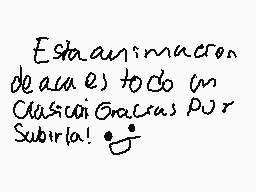 Esta animacion
de aca es todo un
Clasico! Gracias por
Subirla!